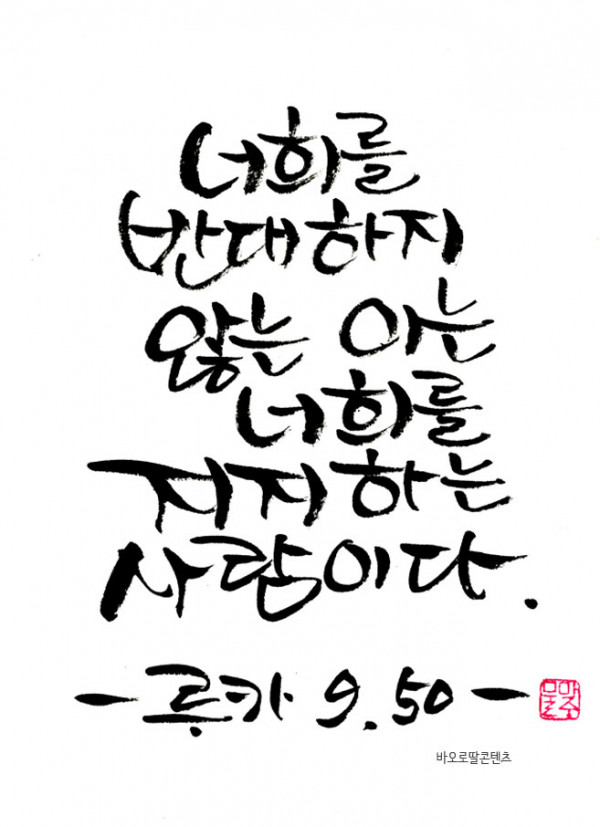 너희를
반대하지
않는 이는
너희를
지지하는
사람이다.
- 루카 9.50 -
바오로딸콘텐츠